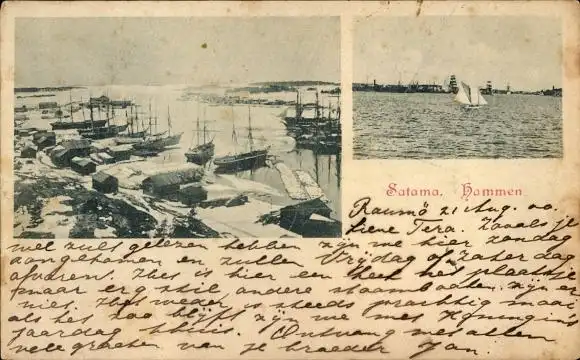 Satama. Hammen
Raumö 21 Aug. 00.
Lieve Tera. Zooals je
wel zult gelezen hebben zijn we hier zondag
aangekomen en zullen Vrijdag of Zaterdag
afvaren. Het is hier een leuk net plaatsje
maar erg stil andere stoombooten zijn er
niet. Het weder is steeds prachtig maar
als het zoo blijft zijn we met Koningin's
jaardag thuis. Ontvang met allen
vele groeten van je broeder Jan